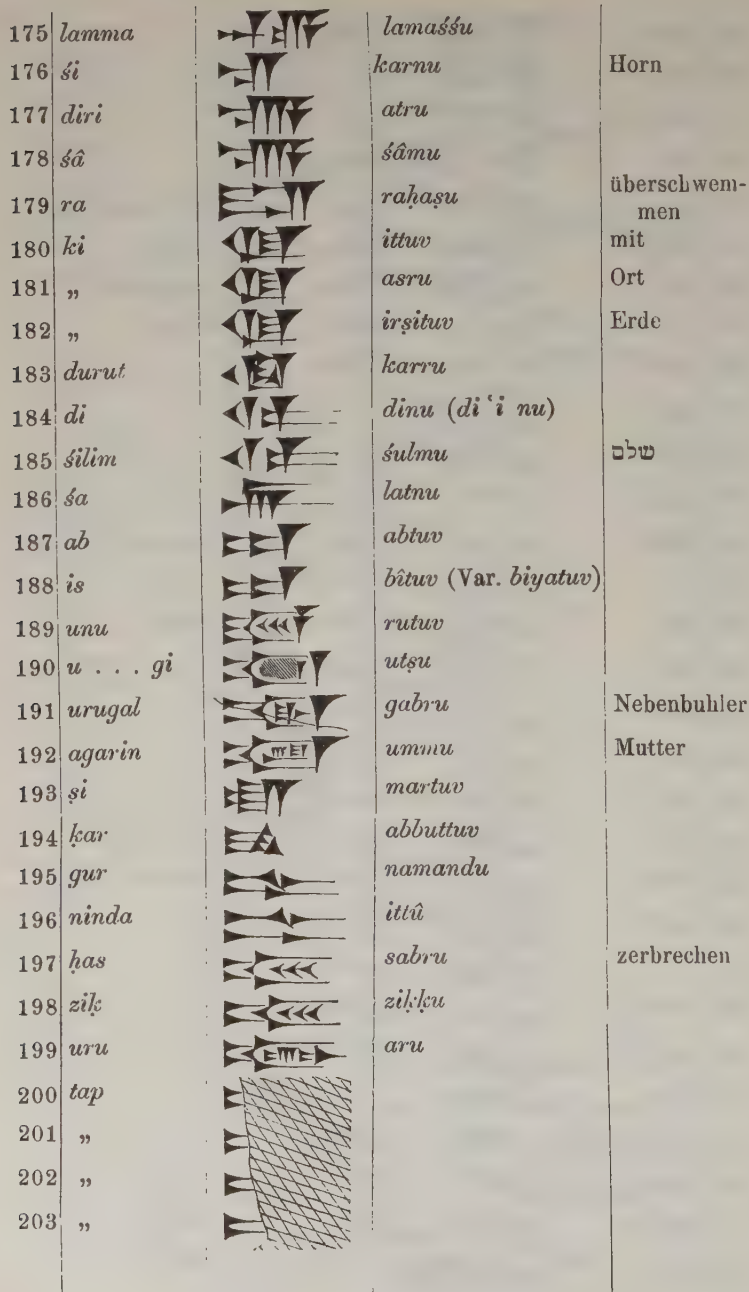 175 lamma lamaśśu
176 śi karnu Horn
177 diri atru
178 śâ śâmu
179 ra raḥaṣu überschwem-
men
180 ki ittuv mit
181 „ asru Ort
182 „ irṣituv Erde
183 durut karru
184 di dinu (di ʿi nu)
185 śilim śulmu שלם
186 śa latnu
187 ab abtuv
188 is bîtuv (Var. biyatuv)
189 unu rutuv
190 u . . . gi utṣu
191 urugal gabru Nebenbuhler
192 agarin ummu Mutter
193 ṣi martuv
194 ḳar abbuttuv
195 gur namandu
196 ninda ittû
197 ḥas sabru zerbrechen
198 ziḳ ziḳḳu
199 uru aru
200 tap
201 „
202 „
203 „